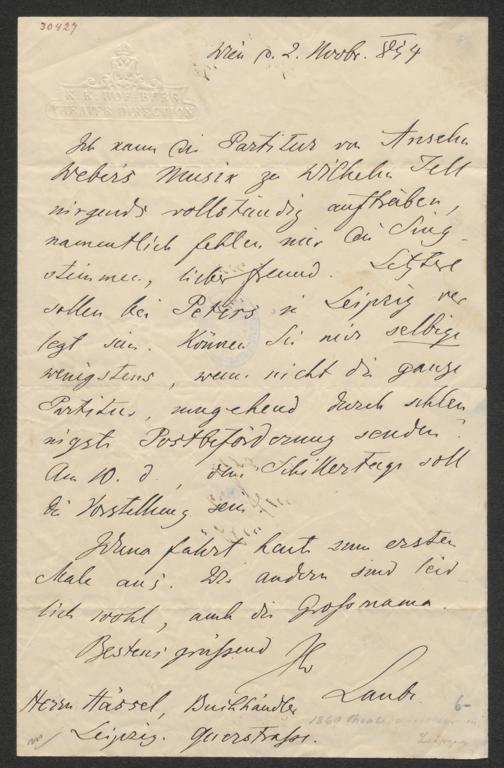 30427
K. K. HOF-BURG
THEATER DIRECTION
Wien d. 2. Novbr. 854
Ich kann die Partitur von Anselm
Webers Musik zu Wilhelm Tell
nirgends vollständig auftreiben,
namentlich fehlen mir die Sing-
stimmen, lieber Freund. Letztre
sollen bei Peters in Leipzig ver
legt sein. Können Sie mir selbige
wenigstens, wenn nicht die ganze
Partitur, umgehend durch schleu
nigste Postbeförderung senden?
Am 10. d., dem Schillertage soll
die Vorstellung sein.
fährt heute zum ersten
Male aus. Die andern sind leid
lich wohl, auch die Grossmama.
Bestens grüssend Ihr
Laube
Herrn Hässel, Buchhändler
Leipzig. Querstrasse.
6-